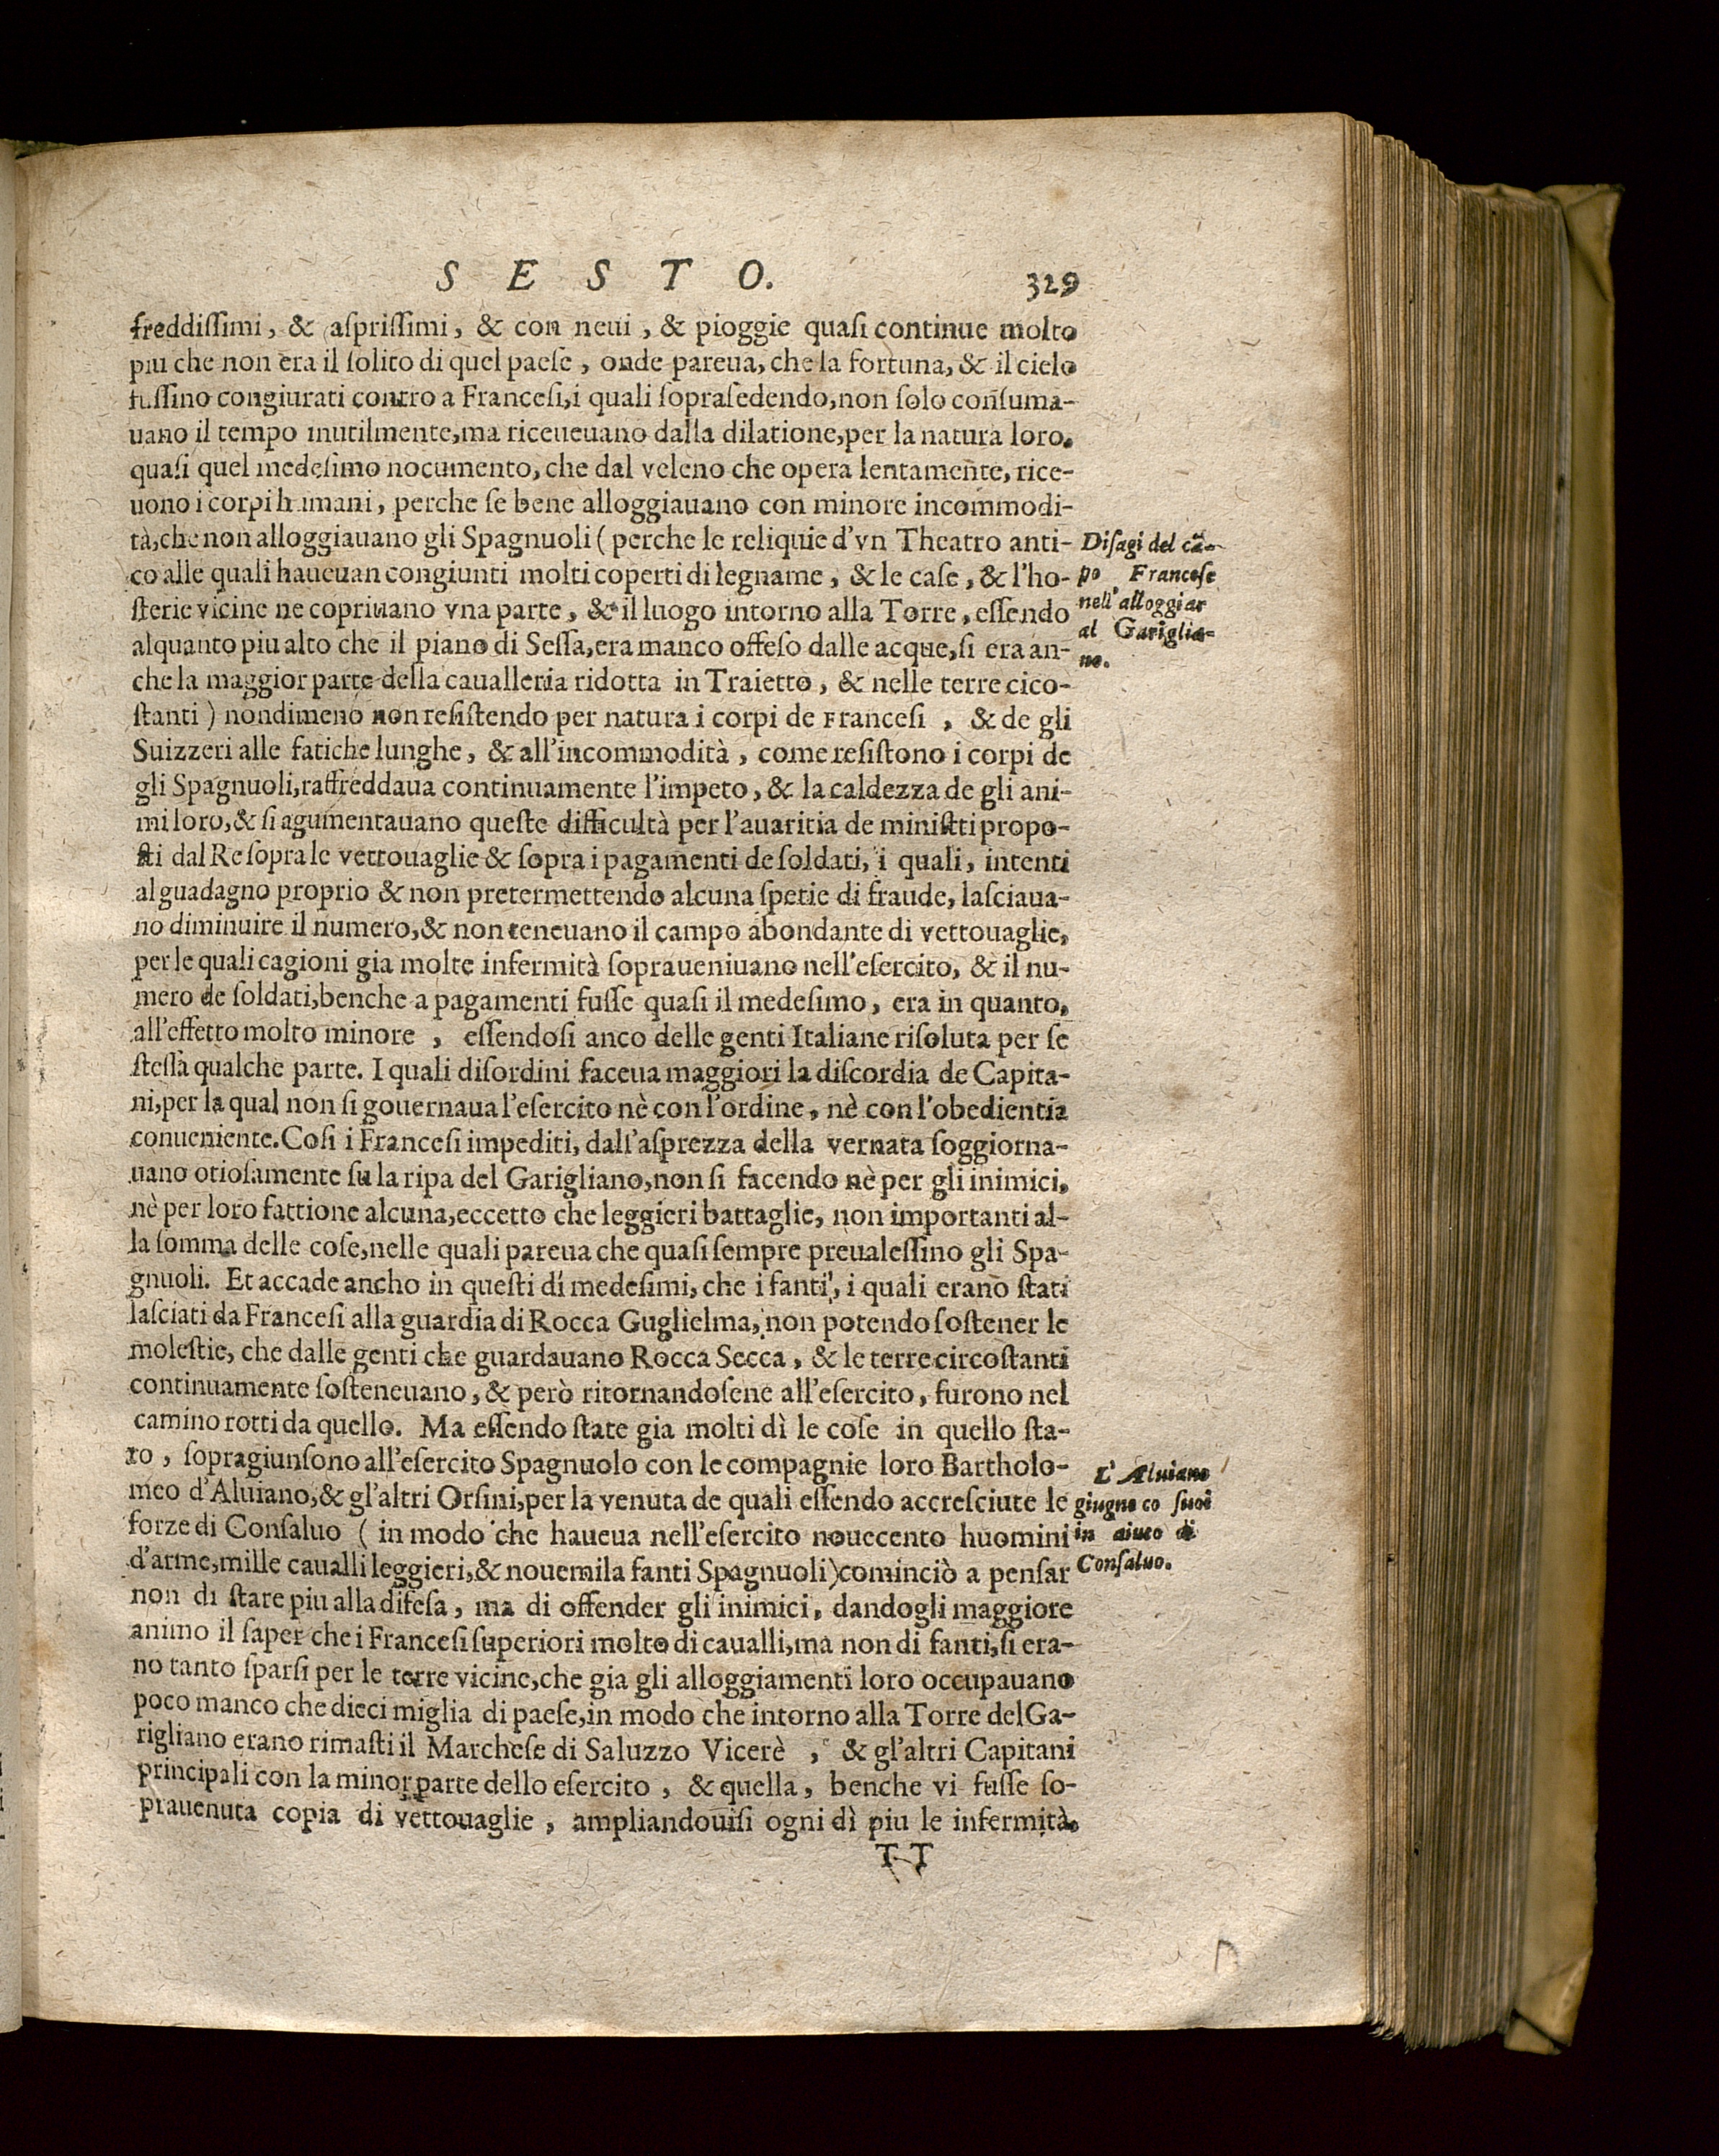 SESTO. 329
freddiſſimi, & aſpriſſimi, & con neui, & pioggie quaſi continue molto
piu che non era il ſolito di quel paeſe, onde pareua, che la fortuna, & il cielo
fuſſino congiurati contro a Franceſi, i quali ſopraſedendo, non ſolo conſuma-
uano il tempo inutilmente, ma riceueuano dalla dilatione, per la natura loro.
quaſi quel medeſimo nocumento, che dal veleno che opera lentamente, rice-
uono i corpi humani, perche ſe bene alloggiauano con minore incommodi-
tà, che non alloggiauano gli Spagnuoli (perche le reliquie d'vn Theatro anti-
co alle quali haueuan congiunti molti coperti di legname, & le caſe, & l'ho-
ſterie vicine ne copriuano vna parte, & il luogo intorno alla Torre, eſſendo
alquanto piu alto che il piano di Seſſa, era manco offeſo dalle acque, ſi era an-
che la maggior parte della caualleria ridotta in Traietto, & nelle terre cico-
ſtanti) nondimeno non reſiſtendo per natura i corpi de Franceſi, & de gli
Suizzeri alle fatiche lunghe, & all'incommodità, come reſiſtono i corpi de
gli Spagnuoli, raffreddaua continuamente l'impeto, & la caldezza de gli ani-
mi loro, & ſi agumentauano queſte difficultà per l'auaritia de miniſtti propo-
ſti dal Re ſopra le vettouaglie & ſopra i pagamenti de ſoldati, i quali, intenti
al guadagno proprio & non pretermettendo alcuna ſpetie di fraude, laſciaua-
no diminuire il numero, & non teneuano il campo abondante di vettouaglie,
per le quali cagioni gia molte infermità ſopraueniuano nell'eſercito, & il nu-
mero de ſoldati, benche a pagamenti fuſſe quaſi il medeſimo, era in quanto.
all'effetto molto minore, eſſendoſi anco delle genti Italiane riſoluta per ſe
ſteſſa qualche parte. I quali diſordini faceua maggiori la diſcordia de Capita-
ni, per la qual non ſi gouernaua l'eſercito nè con l'ordine, nè con l'obedientia
conueniente. Coſi i Franceſi impediti, dall'aſprezza della vernata ſoggiorna-
uano otioſamente ſu la ripa del Garigliano, non ſi facendo nè per gli inimici,
nè per loro fattione alcuna, eccetto che leggieri battaglie, non importanti al-
la ſomma delle coſe, nelle quali pareua che quaſi ſempre preualeſſino gli Spa-
gnuoli. Et accade ancho in queſti dí medeſimi, che i fanti, i quali erano ſtati
laſciati da Franceſi alla guardia di Rocca Guglielma, non potendo ſoſtener le
moleſtie, che dalle genti che guardauano Rocca Secca, & le terre circoſtanti
continuamente ſoſteneuano, & però ritornandoſene all'eſercito, furono nel
camino rotti da quello. Ma eſſendo ſtate gia molti dì le coſe in quello ſta-
to, ſopragiunſono all'eſercito Spagnuolo con le compagnie loro Bartholo-
meo d'Aluiano, & gl'altri Orſini, per la venuta de quali eſſendo accreſciute le
forze di Conſaluo (in modo che haueua nell'eſercito nouecento huomini
d'arme, mille caualli leggieri, & nouemila fanti Spagnuoli) cominciò a penſar
non di ſtare piu alla difeſa, ma di offender gli inimici, dandogli maggiore
animo il ſaper che i Franceſi ſuperiori molto di caualli, ma non di fanti, ſi era-
no tanto ſparſi per le terre vicine, che gia gli alloggiamenti loro occupauano
poco manco che dieci miglia di paeſe, in modo che intorno alla Torre del Ga-
rigliano erano rimaſti il Marcheſe di Saluzzo Vicerè, & gl'altri Capitani
principali con la minor parte dello eſercito, & quella, benche vi fuſſe ſo-
prauenuta copia di vettouaglie, ampliandouiſi ogni dì piu le infermità.
TT
Diſagi del cã-
po Franceſe
nell'alloggiar
al Gariglia-
no.
L'Aluiano
giugne co ſuoi
in aiuto di
Conſaluo.